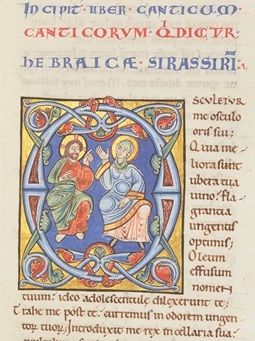 INCIPIT LIBER CANTICUM
CANTICORVM QD DICTR
HEBRAICÆ SIRASSIRĪ
OSCULETUR
me osculo
oris sui;
Quia me
liora sunt
ubera tua
uino. Fla
grantia
unguentis
optimis;
Oleum
effusum
nomen
tuum: ideo adolescentule dilexerunt te;
Trahe me post te. curremus in odorem ungen
tor tuor; Introduxit me rex in cellaria sua